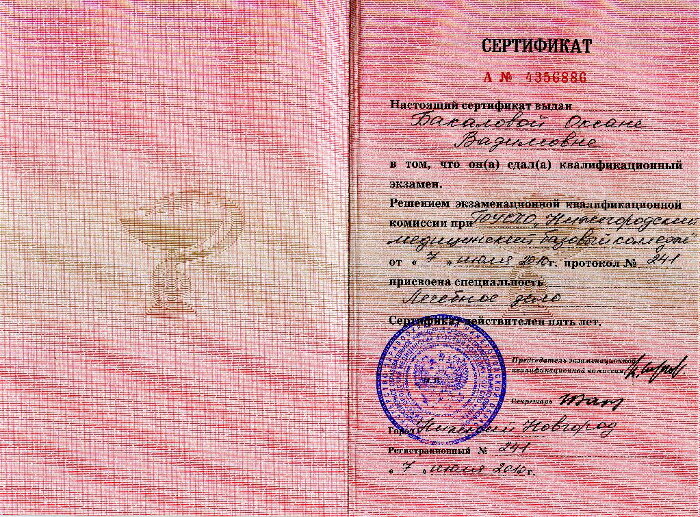 СЕРТИФИКАТ
А № 4356886
Настоящий сертификат выдан
Бакаловой Оксане
Вадимовне
в том, что он(а) сдал(а) квалификационный
экзамен.
Решением экзаменационной квалификационной
комиссии при ГОУСПО, Нижегородский
медицинский базовый колледж
от « 7 » июля 2010 г. протокол № 241
присвоена специальность
Лечебное дело
Сертификат действителен пять лет.
Председатель экзаменационной
квалификационной комиссии
Секретарь
Город Нижний Новгород
Регистрационный № 241
« 7 » июля 2010 г.